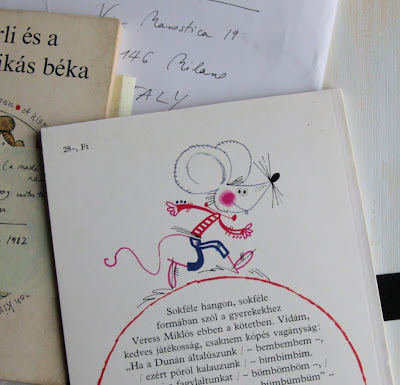 rli és a
ikás béka
V Marostica 19
146 Milano
ITALY
28–, Ft
1982
Sokféle hangon, sokféle
formában szól a gyerekekhez
Veress Miklós ebben a kötetben. Vidám,
kedves játékosság, csaknem kópés vagányság:
„Ha a Dunán általúszunk / – bembembem –,
/ ezért pöröl kalauzunk / – bimbimbim.
fagylaltunkat / – bömbömböm –,